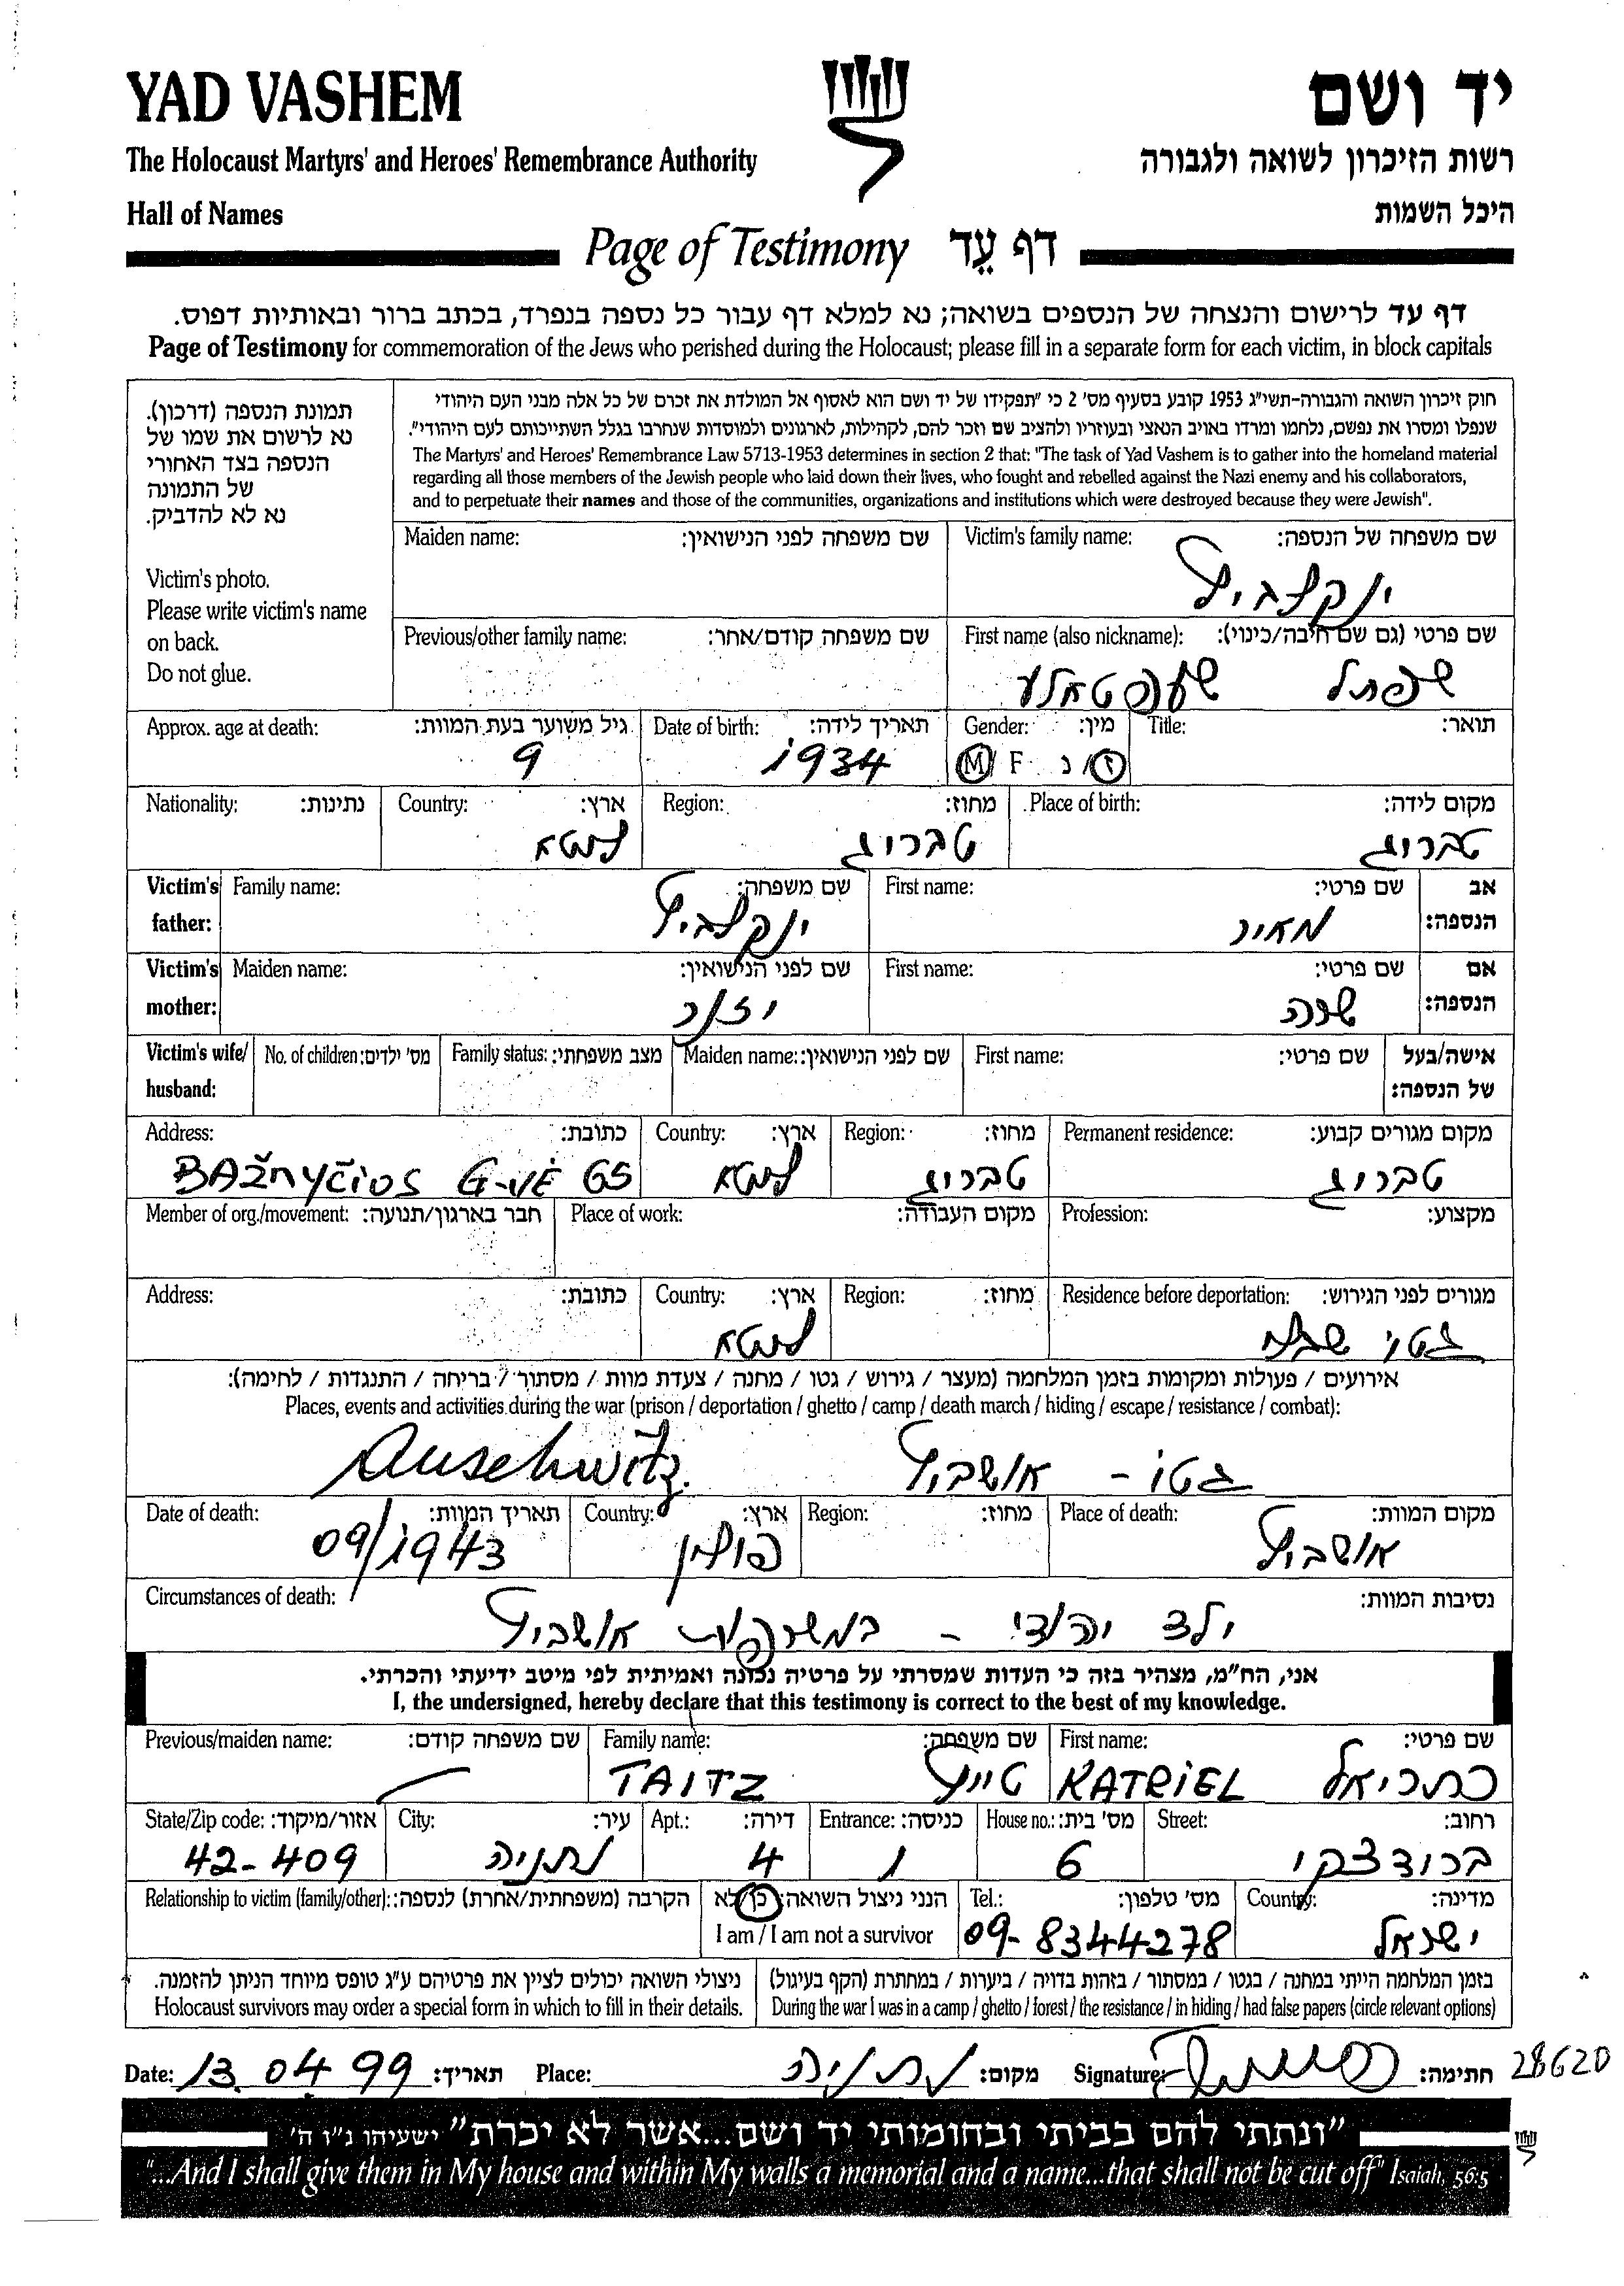 YAD VASHEM
יד ושם
The Holocaust Martyrs' and Heroes' Remembrance Authority
רשות הזיכרון לשואה ולגבורה
Hall of Names
היכל השמות
Page of Testimony דף עֵד
דף עד לרישום והנצחה של הנספים בשואה; נא למלא דף עבור כל נספה בנפרד, בכתב ברור ובאותיות דפוס.
Page of Testimony for commemoration of the Jews who perished during the Holocaust; please fill in a separate form for each victim, in block capitals
תמונת הנספה (דרכון).
נא לרשום את שמו של
הנספה בצד האחורי
של התמונה
נא לא להדביק.
Victim's photo.
Please write victim's name
on back.
Do not glue.
חוק זיכרון השואה והגבורה-תשי"ג 1953 קובע בסעיף מס' 2 כי "תפקידו של יד ושם הוא לאסוף אל המולדת את זכרם של כל אלה מבני העם היהודי
שנפלו ומסרו את נפשם, נלחמו ומרדו באויב הנאצי ובעוזריו ולהציב שם וזכר להם, לקהילות, לארגונים ולמוסדות שנחרבו בגלל השתייכותם לעם היהודי".
The Martyrs' and Heroes' Remembrance Law 5713-1953 determines in section 2 that: "The task of Yad Vashem is to gather into the homeland material
regarding all those members of the Jewish people who laid down their lives, who fought and rebelled against the Nazi enemy and his collaborators,
and to perpetuate their names and those of the communities, organizations and institutions which were destroyed because they were Jewish".
Maiden name: שם משפחה לפני הנישואין: Victim's family name: שם משפחה של הנספה:
ינקלביץ
Previous/other family name: שם משפחה קודם/אחר: First name (also nickname): שם פרטי (גם שם חיבה/כינוי):
שפתל שעפטאלע
Approx. age at death: גיל משוער בעת המוות: Date of birth: תאריך לידה: Gender: מין: Title: תואר:
9 1934 M F ז/נ
Nationality: נתינות: Country: ארץ: Region: מחוז: Place of birth: מקום לידה:
ליטא טברוג טברוג
Victim's father: Family name: שם משפחה: First name: שם פרטי: אב הנספה:
ינקלביץ מאיר
Victim's mother: Maiden name: שם לפני הנישואין: First name: שם פרטי: אם הנספה:
יזנר שרה
Victim's wife/ husband: No. of children: מס' ילדים: Family status: מצב משפחתי: Maiden name: שם לפני הנישואין: First name: שם פרטי: אישה/בעל של הנספה:
Address: כתובת: Country: ארץ: Region: מחוז: Permanent residence: מקום מגורים קבוע:
BAŽNYČIOS G-VĖ 65 ליטא טברוג טברוג
Member of org./movement: חבר בארגון/תנועה: Place of work: מקום העבודה: Profession: מקצוע:
Address: כתובת: Country: ארץ: Region: מחוז: Residence before deportation: מגורים לפני הגירוש:
ליטא גטו שבלי
אירועים / פעולות ומקומות בזמן המלחמה (מעצר / גירוש / גטו / מחנה / צעדת מוות / מסתור / בריחה / התנגדות / לחימה):
Places, events and activities during the war (prison / deportation / ghetto / camp / death march / hiding / escape / resistance / combat):
גטו - אושביץ Auschwitz.
Date of death: תאריך המוות: Country: ארץ: Region: מחוז: Place of death: מקום המוות:
09/1943 פולין אושביץ
Circumstances of death: נסיבות המוות:
ילד יהודי - במשרפות אושביץ
אני, הח"מ, מצהיר בזה כי העדות שמסרתי על פרטיה נכונה ואמיתית לפי מיטב ידיעתי והכרתי.
I, the undersigned, hereby declare that this testimony is correct to the best of my knowledge.
Previous/maiden name: שם משפחה קודם: Family name: שם משפחה: First name: שם פרטי:
TAITZ טייץ KATRIEL כתריאל
State/Zip code: אזור/מיקוד: City: עיר: Apt.: דירה: Entrance: כניסה: House no.: מס' בית: Street: רחוב:
42-409 נתניה 4 1 6 ברודצקי
Relationship to victim (family/other): הקרבה (משפחתית/אחרת) לנספה: הנני ניצול השואה: כן/לא Tel.: מס' טלפון: Country: מדינה:
I am / I am not a survivor 09-8344278 ישראל
ניצולי השואה יכולים לציין את פרטיהם ע"ג טופס מיוחד הניתן להזמנה. בזמן המלחמה הייתי במחנה / בגטו / במסתור / בזהות בדויה / ביערות / במחתרת (הקף בעיגול)
Holocaust survivors may order a special form in which to fill in their details. During the war I was in a camp / ghetto / forest / the resistance / in hiding / had false papers (circle relevant options)
Date: 13.04.99 תאריך: Place: נתניה מקום: Signature: חתימה: 28620
"ונתתי להם בביתי ובחומותי יד ושם...אשר לא יכרת" ישעיהו נ"ו ה'
"...And I shall give them in My house and within My walls a memorial and a name...that shall not be cut off" Isaiah, 56:5